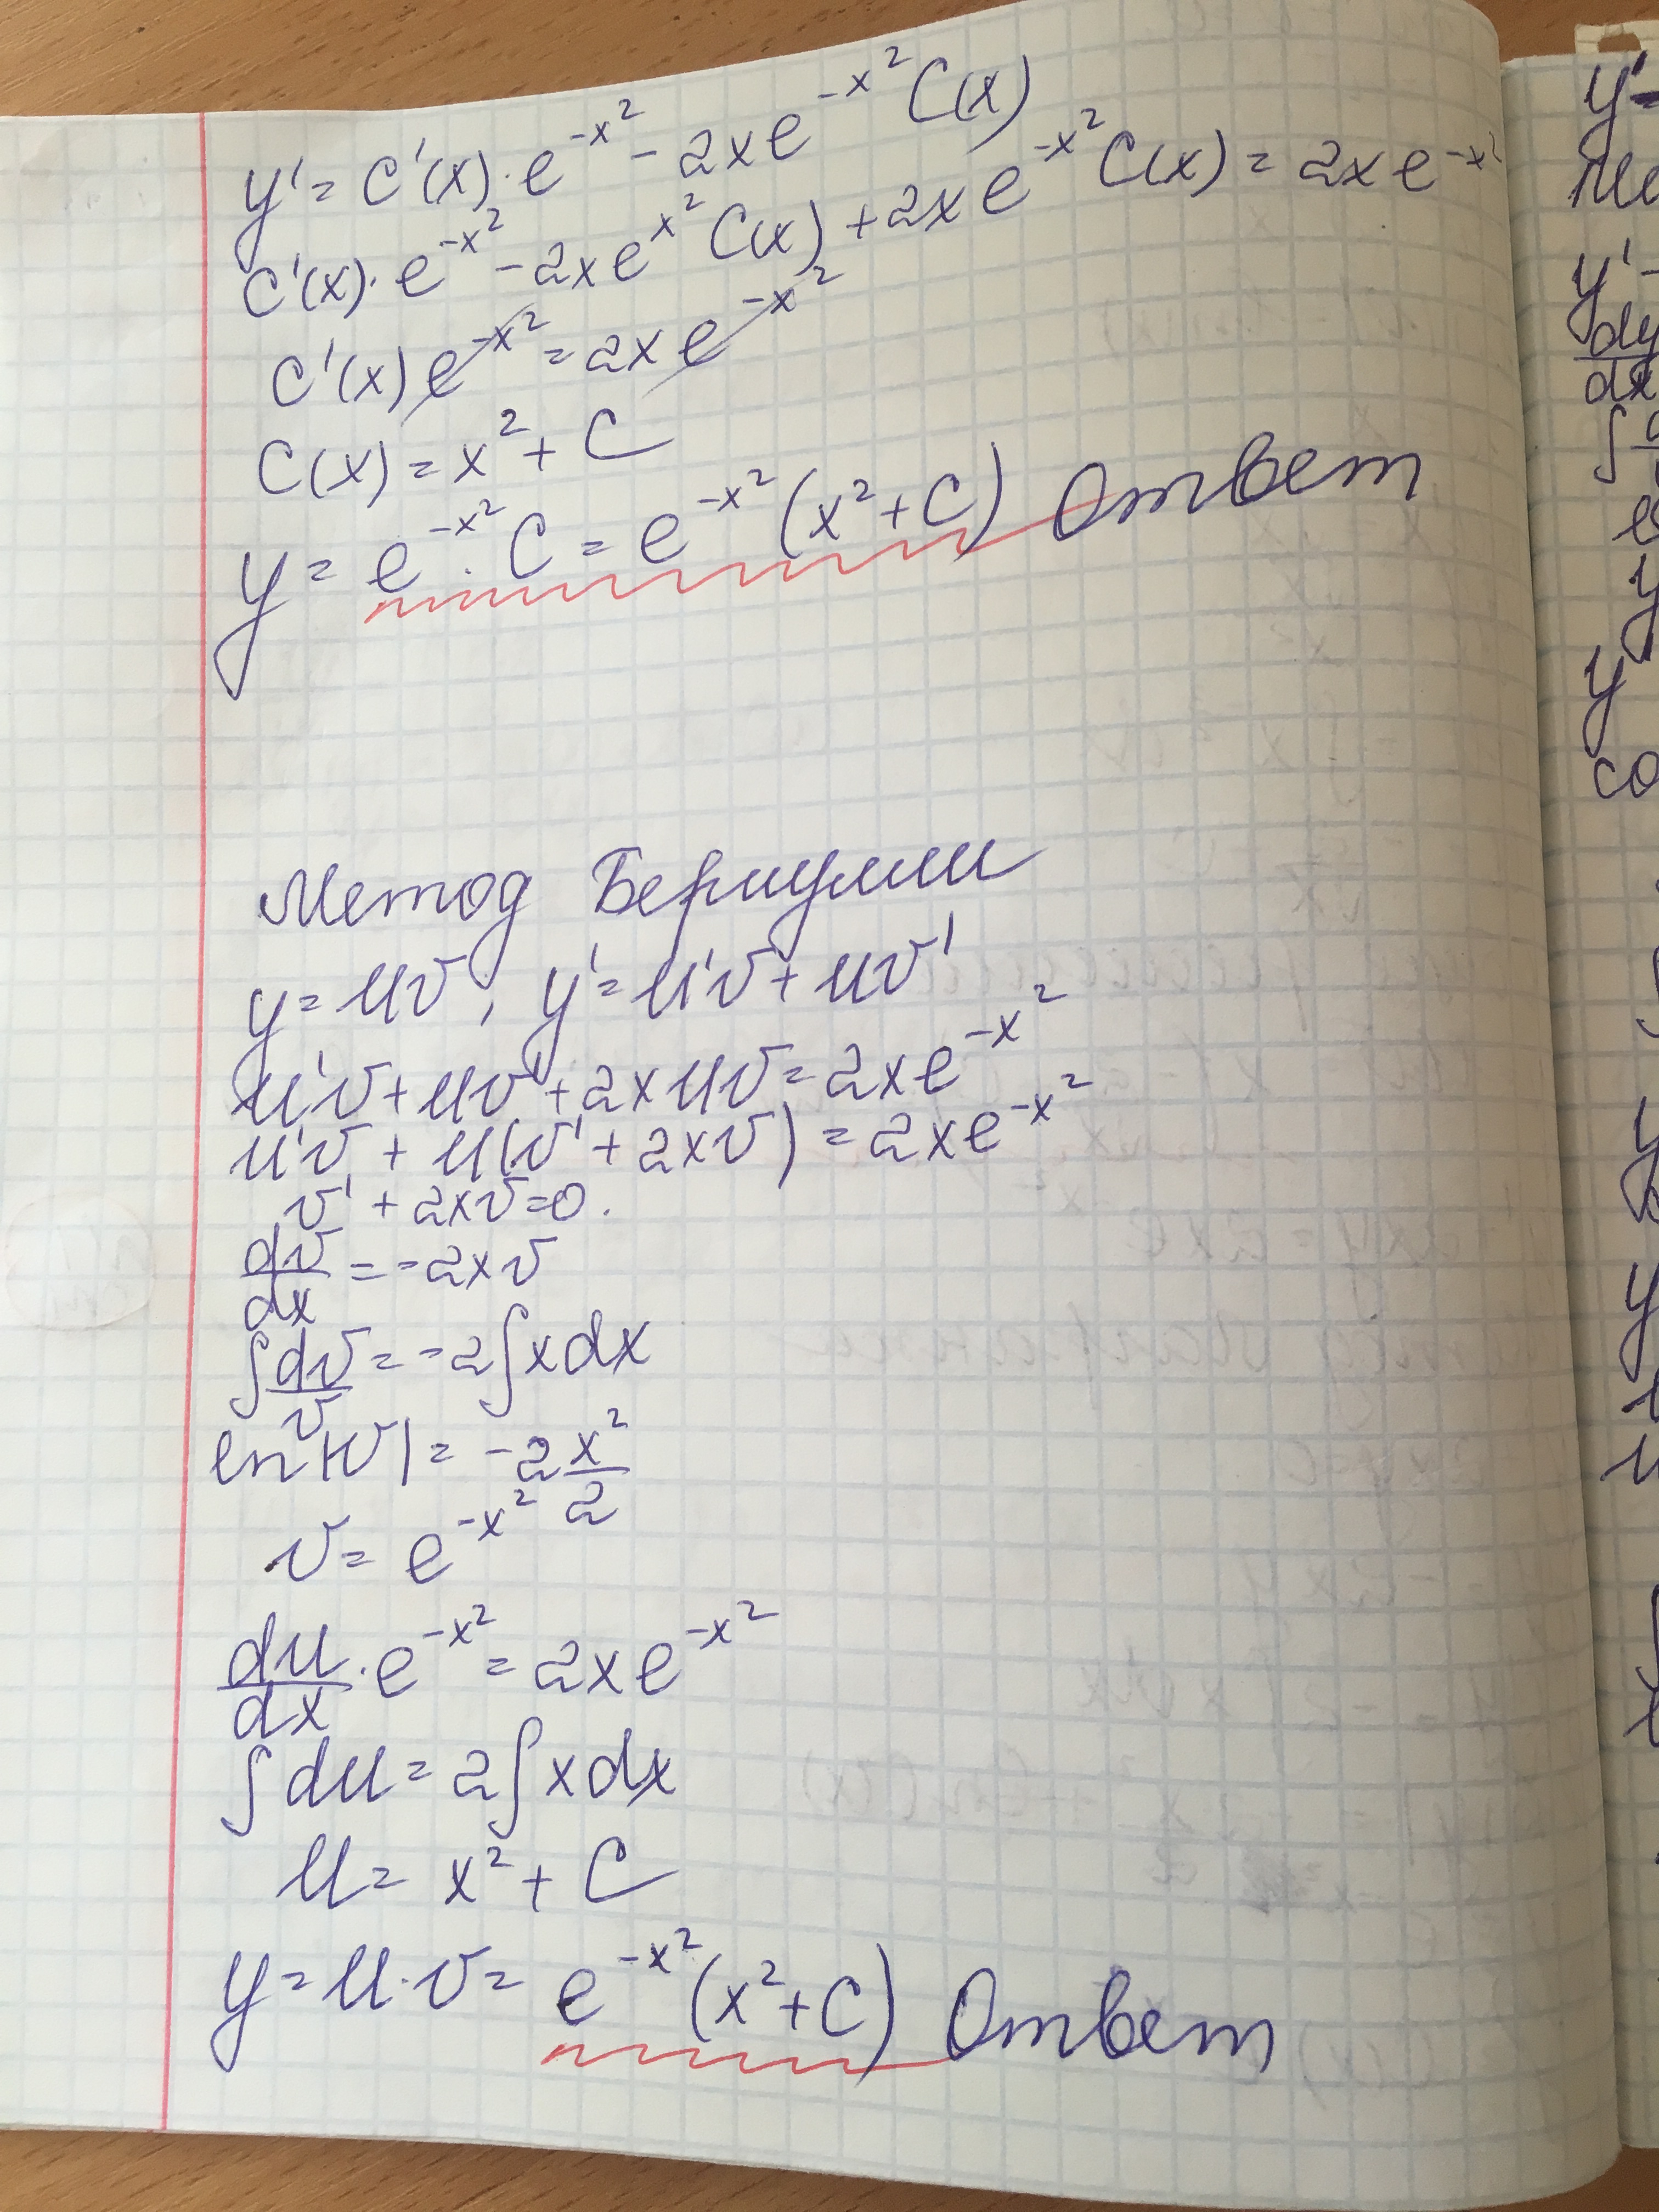 y' = C'(x)·e^{-x^2} - 2xe^{-x^2}C(x)
C'(x)·e^{-x^2} - 2xe^{x^2}C(x) + 2xe^{-x^2}C(x) = 2xe^{-x^2}
C'(x)e^{-x^2} = 2xe^{-x^2}
C(x) = x^2 + C
y = e^{-x^2}·C = e^{-x^2}(x^2+C) Ответ
Метод Бернулли
y = uv, y' = u'v + uv'
u'v + uv' + 2xuv = 2xe^{-x^2}
u'v + u(v' + 2xv) = 2xe^{-x^2}
v' + 2xv = 0.
dv/dx = -2xv
∫dv/v = -2∫xdx
ln|v| = -2 x^2/2
v = e^{-x^2}
du/dx · e^{-x^2} = 2xe^{-x^2}
∫du = 2∫xdx
u = x^2 + C
y = u·v = e^{-x^2}(x^2+C) Ответ
y'
y'-
dy
dx
∫
e
y
y
со
y
y